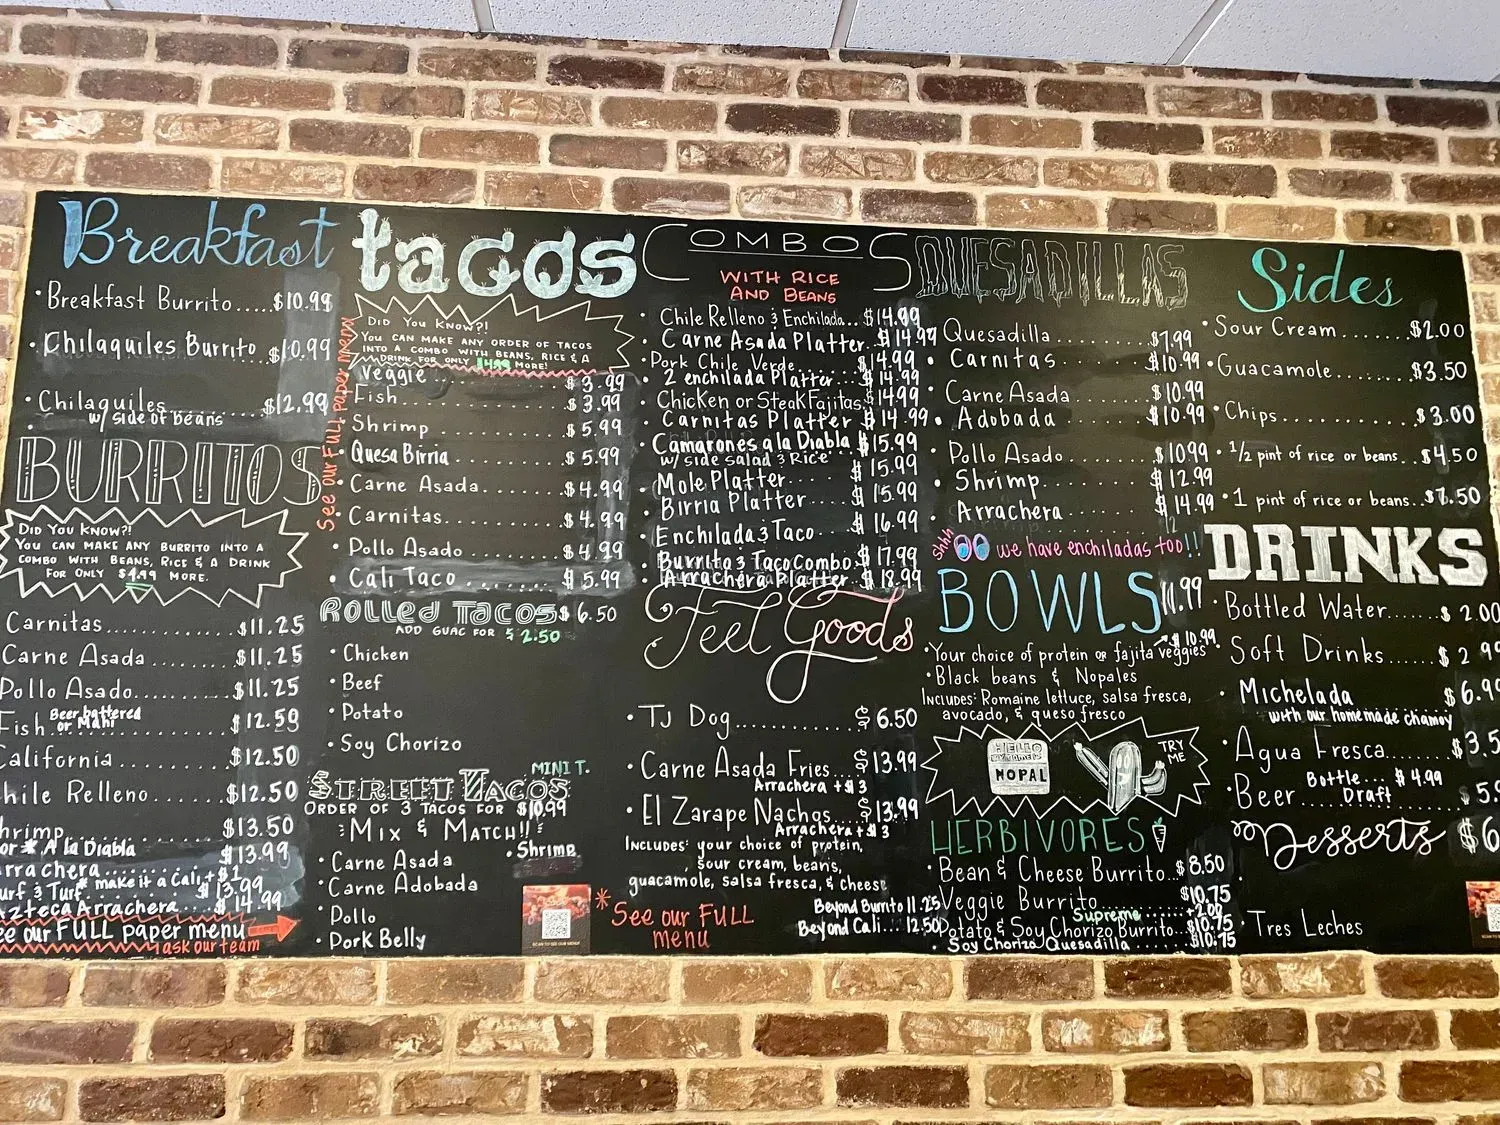 Breakfast
• Breakfast Burrito.....$10.99
• Chilaquiles Burrito $10.99
• Chilaquiles........$12.99
w/ side of beans
BURRITOS
DID YOU KNOW?!
YOU CAN MAKE ANY BURRITO INTO A
COMBO WITH BEANS, RICE & A DRINK
FOR ONLY $4.99 MORE.
Carnitas...........$11.25
Carne Asada........$11.25
Pollo Asado........$11.25
Fish Beer battered or Mahi $12.59
California.........$12.50
hile Relleno.......$12.50
hrimp..............$13.50
or * A la Diabla $13.99
rrachera
* make it a Cali, + $1
urf & Turf $13.99
Azteca Arrachera... $14.99
ee our FULL paper menu
*ask our team
See our FULL paper menu
tacos
DID YOU KNOW?!
YOU CAN MAKE ANY ORDER OF TACOS
INTO A COMBO WITH BEANS, RICE & A
DRINK FOR ONLY MORE!
Veggie $3.99
• Fish $3.99
• Shrimp $5.99
• Quesa Birria $5.99
• Carne Asada.......$4.99
• Carnitas..........$4.99
• Pollo Asado.......$4.99
• Cali Taco.........$5.99
ROLLED TACOS $6.50
ADD GUAC FOR $2.50
• Chicken
• Beef
• Potato
• Soy Chorizo
STREET TACOS MINI T.
ORDER OF 3 TACOS FOR $10.99
MIX & MATCH!!
• Carne Asada
• Shrimp
• Carne Adobada
• Pollo
• Pork Belly
COMBOS
WITH RICE
AND BEANS
• Chile Relleno & Enchilada...$14.99
• Carne Asada Platter..$14.99
• Pork Chile Verde...$14.99
• 2 enchilada Platter...$14.99
• Chicken or Steak Fajitas.$14.99
• Carnitas Platter $14.99
• Camarones a la Diabla $15.99
w/ side salad & Rice
• Mole Platter $15.99
• Birria Platter $15.99
• Enchilada & Taco $16.99
• Burrito & Taco Combo $17.99
• Arrachera Platter $18.99
Feel Goods
• TJ Dog............$6.50
• Carne Asada Fries...$13.99
Arrachera + $3
• El Zarape Nachos...$13.99
Arrachera + $3
INCLUDES: your choice of protein,
sour cream, beans,
guacamole, salsa fresca, & cheese
* See our FULL
menu
Beyond Burrito 11.25
Beyond Cali... 12.50
QUESADILLAS
Quesadilla $7.99
• Carnitas $10.99
• Carne Asada $10.99
• Adobada $10.99
• Pollo Asado 10.99
• Shrimp $12.99
• Arrachera $14.99
shhh we have enchiladas too!!
BOWLS 11.99
$10.99
• Your choice of protein or fajita veggies
• Black beans & Nopales
INCLUDES: Romaine lettuce, salsa fresca,
avocado, & queso fresco
HELLO
MY NAME IS
NOPAL
TRY
ME
HERBIVORES
• Bean & Cheese Burrito..$8.50
Veggie Burrito........$10.75
Supreme...... +2.00
Potato & Soy Chorizo Burrito....$10.75
• Soy Chorizo Quesadilla...... $10.75
Sides
• Sour Cream.......$2.00
• Guacamole........$3.50
• Chips............$3.00
• 1/2 pint of rice or beans..$4.50
• 1 pint of rice or beans...$7.50
DRINKS
• Bottled Water......$2.00
• Soft Drinks......$2 99
• Michelada $6.9
with our homemade chamoy
• Agua Fresca......$3.5
• Beer Bottle... $4.99
Draft $5.
Desserts $6
• Tres Leches